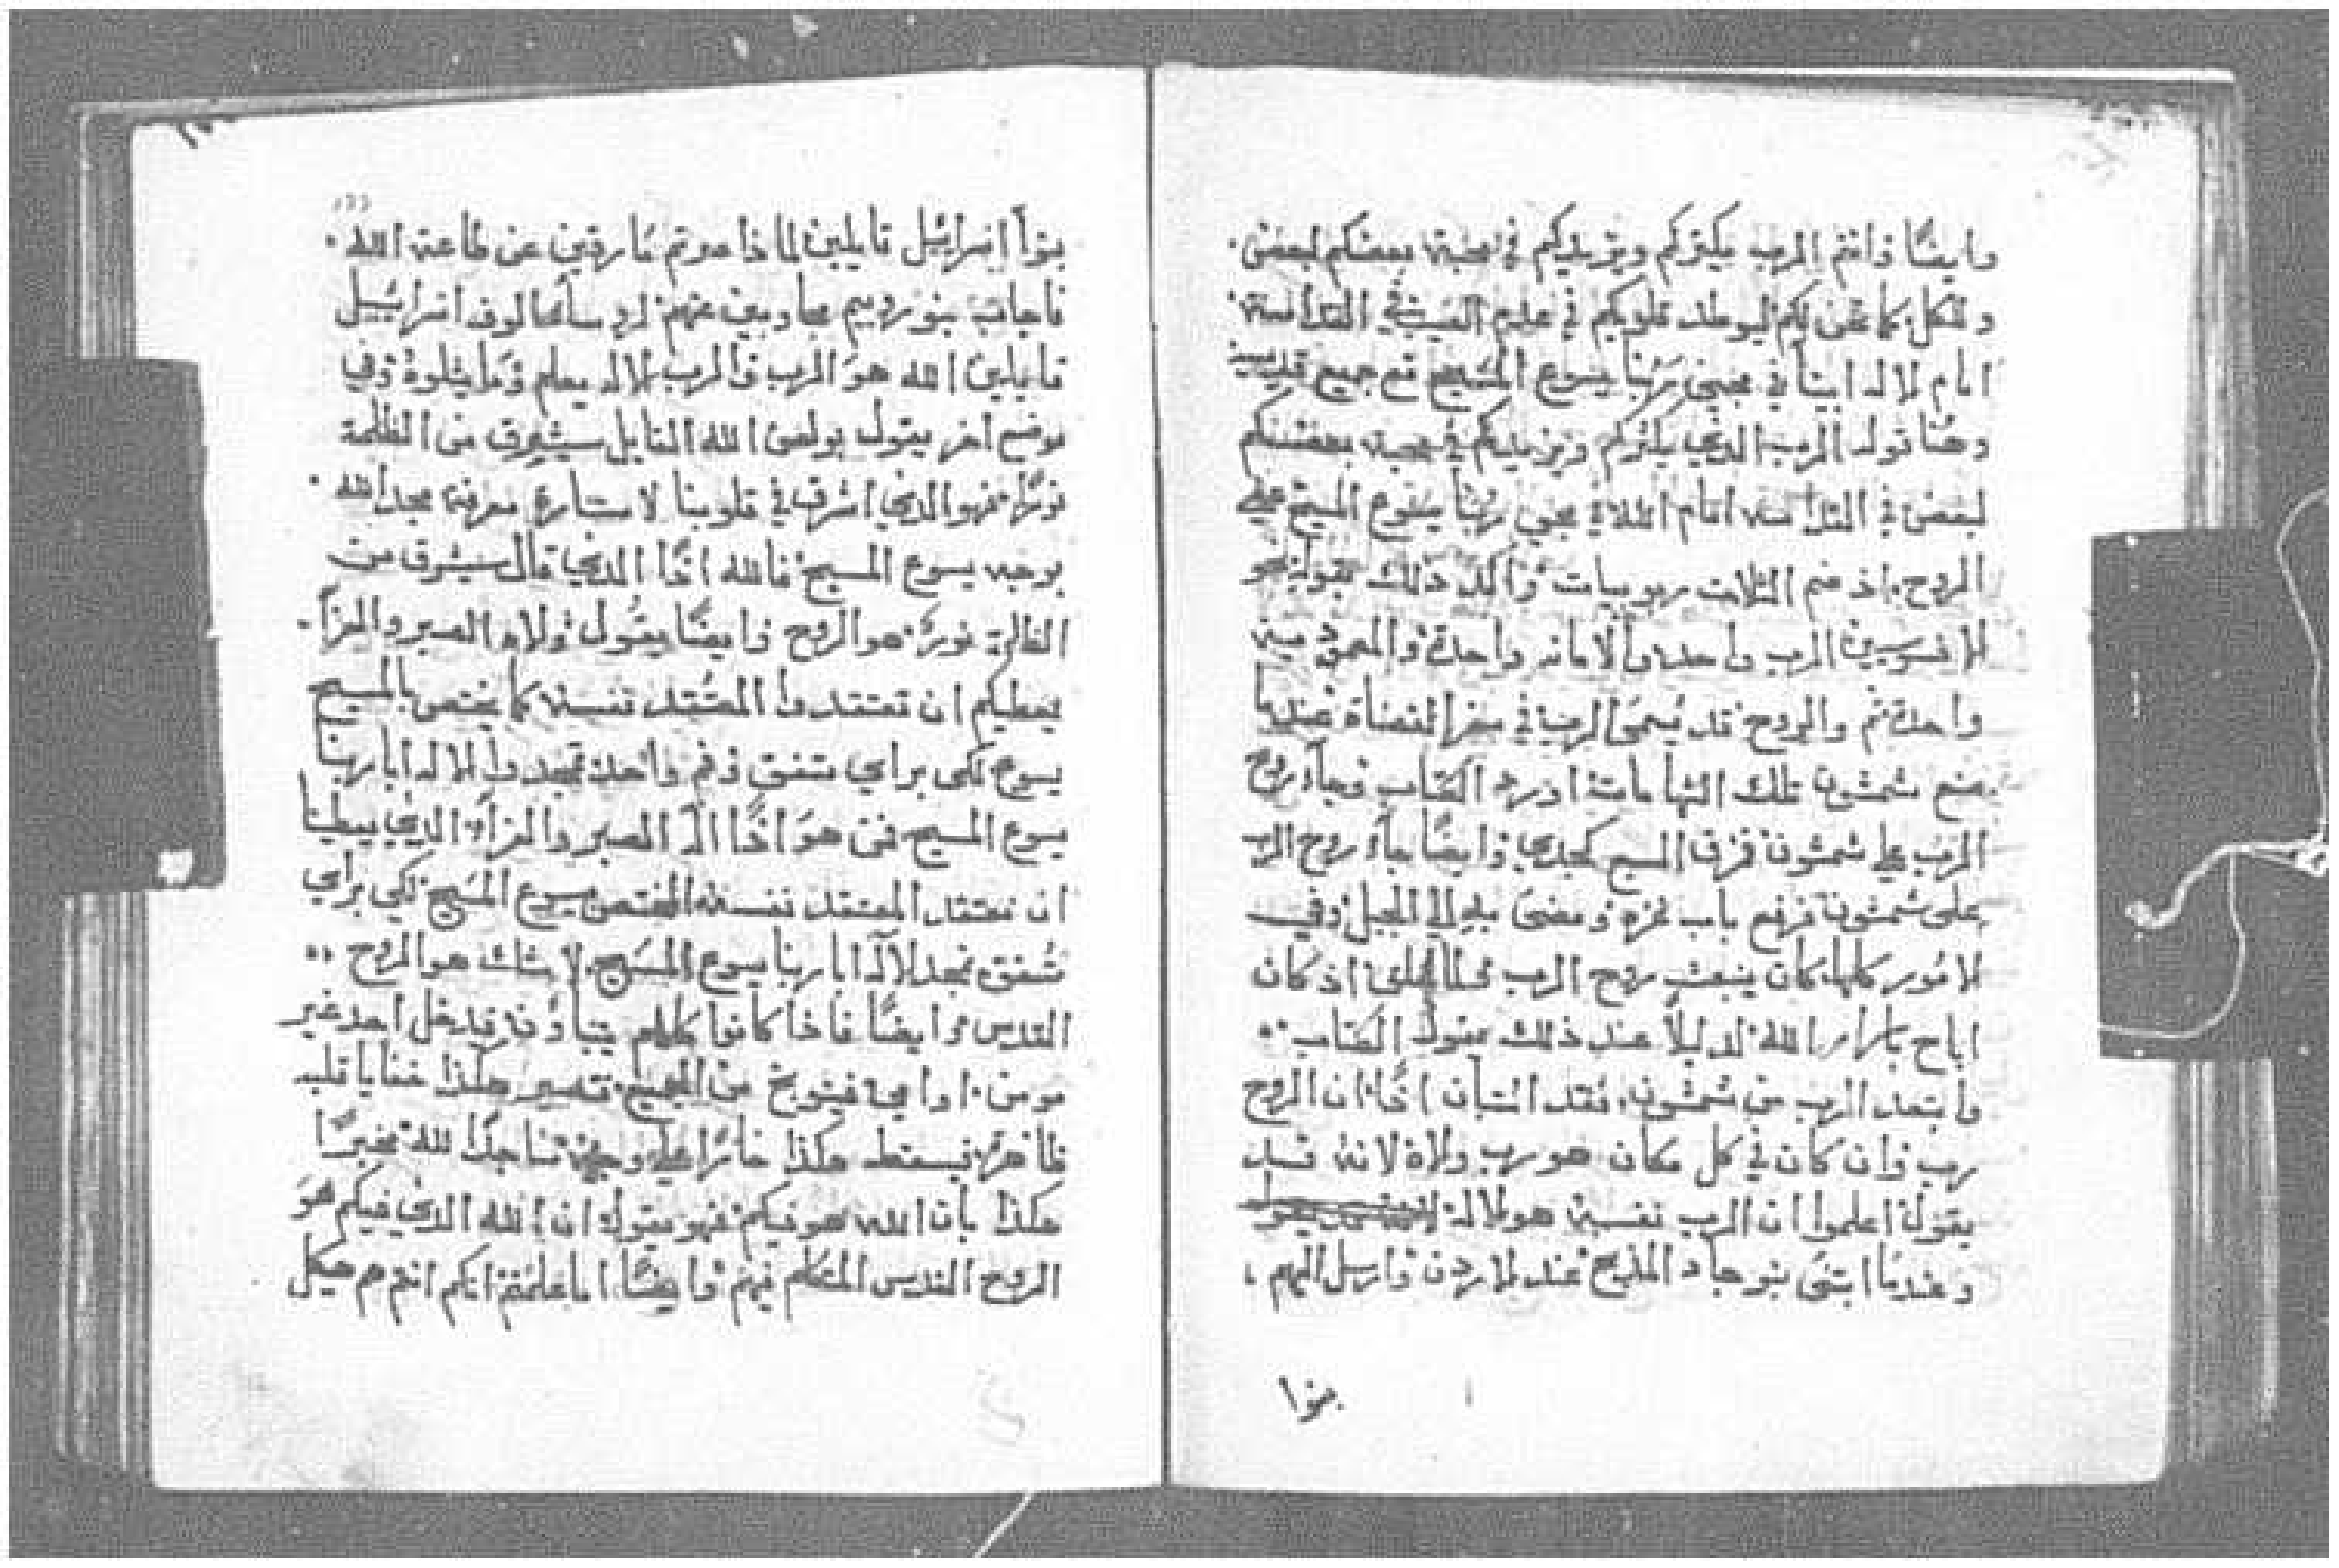 وايضًا وانتم الرب يكثركم ويزيدكم في محبة بعضكم لبعض.
وللكل كما نحن لكم ليوطد قلوبكم في القداسة
امام الاله ابينا في مجي ربنا يسوع المسيح مع جميع قديسيه
وهنا قوله الرب الذي يكثركم ويزيدكم في محبة بعضكم
لبعض في القداسه امام الله في مجي ربنا يسوع المسيح على
الروح. اذ ضم الثلاث ربوبيات واكد ذلك بقوله نحو
الافسوسيين الرب واحد والامانه واحدة والمعموديه
واحدة ثم والروح قد يُسمى الرب في سفر القضاة عندما
صنع شمشون تلك اذ ورد الكتاب وجاء روح
الرب على شمشون فمزق السبع كجدي وايضًا جاء روح الرب
على شمشون فرفع باب غزه ومضى به الى الجبل وفي
الامور كلها كان ينبعث روح الرب اذ كان
اباح باسرار الله لدليلا عند ذلك بقول الكتاب
وابتعد الرب من شمشون. فقد استبان اذًا ان الروح
رب وان كان في كل مكان هو رب والاه لانه قد
يقول اعلموا ان الرب نفسه هو الاله
وعندما ابتنى بنو جاد المذبح عند الاردن وارسل اليهم
بنوا
بنوا اسرائيل قايلين لماذا صرتم مارقين عن طاعة الله.
فاجاب بنو روبيم مجاوبين عنهم لروسا الوف اسرائيل
قايلين الله هو الرب والرب الاله يعلم وما يتلوه وفي
موضع اخر يقول بولص الله القايل سيشرق من الظلمة
نورًا. فهو الذي اشرق في قلوبنا لاستنارة معرفة مجد الله.
بوجه يسوع المسيح فالله اذًا الذي قال سيشرق من
الظلمة نورًا هو الروح وايضًا يقول والاه الصبر والعزآ.
يعطيكم ان تعتقدوا المعتقد نفسه كما يختص بالمسيح
يسوع لكي براي متفق وفم واحد تمجدوا الاله ابا ربنا
يسوع المسيح فمن هو اذًا اله الصبر والعزآ الذي يعطينا
ان نعتقد المعتقد نفسه المختص بيسوع المسيح لكي براي
متفق نمجد الاله ابا ربنا يسوع المسيح. لا شك هو الروح
القدس وايضًا فاذا كانوا كلهم يتنباون فيدخل احد غير
مومن. او امي فيتوبخ من الجميع. فتصير هكذا خفايا قلبه
ظاهرة فيسقط هكذا خارًا على وجهه ساجدًا لله مخبرًا
هكذا بان الله هو فيكم فهو يقول ان الله الذي فيكم هو
الروح القدس المتكلم فيهم وايضًا اما علمتم انكم انتم هم هيكل